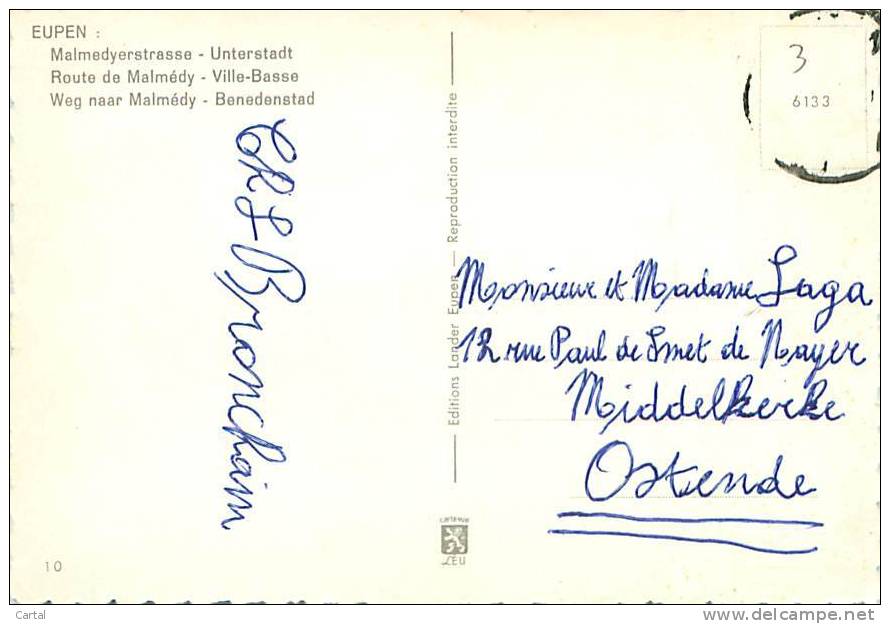 EUPEN :
Malmedyerstrasse - Unterstadt
Route de Malmédy - Ville-Basse
Weg naar Malmédy - Benedenstad
Bronchain
Editions Lander Eupen — Reproduction interdite
3
6133
Monsieur et Madame Laga
12 rue Paul de Smet de Nayer
Middelkerke
Ostende
LEU
10
Cartal
www.delcampe.net